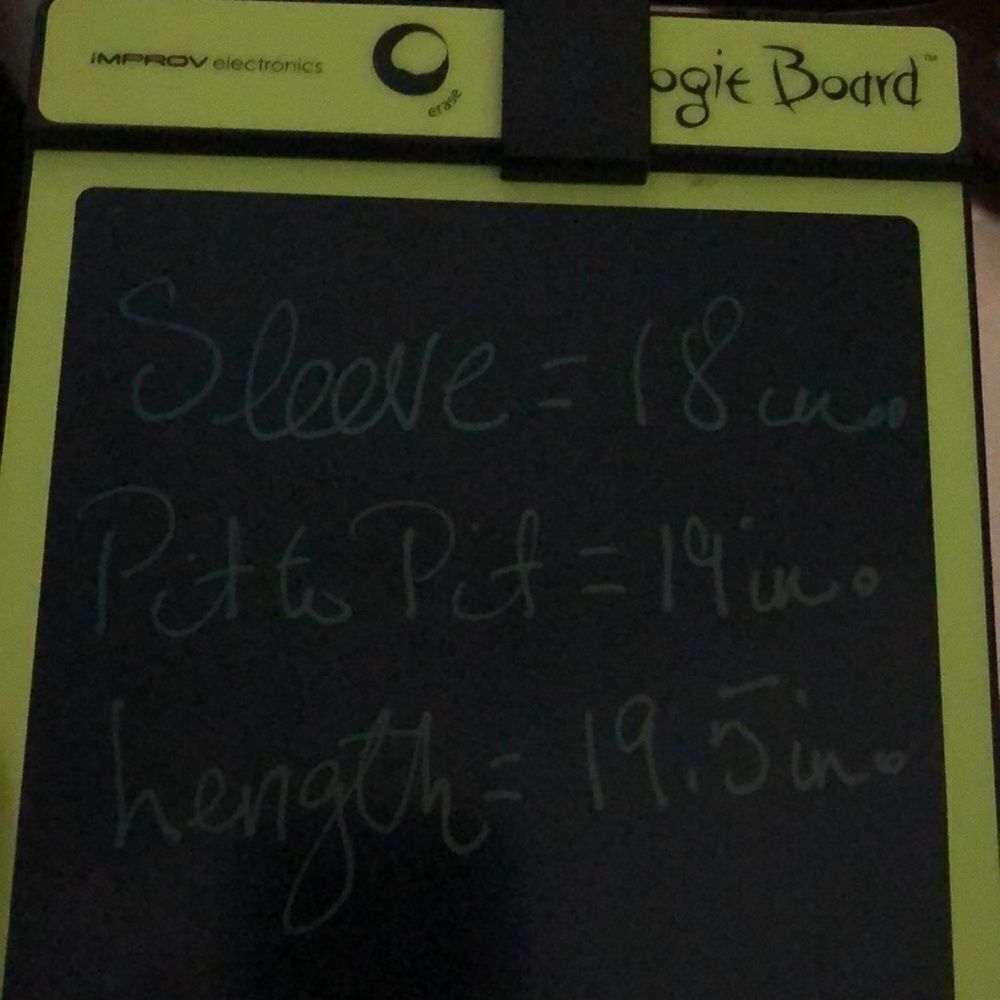 iMPROV electronics
erase
ogie Board™
Sleeve = 18 in.
Pit to Pit = 19 in.
Length = 19.5 in.